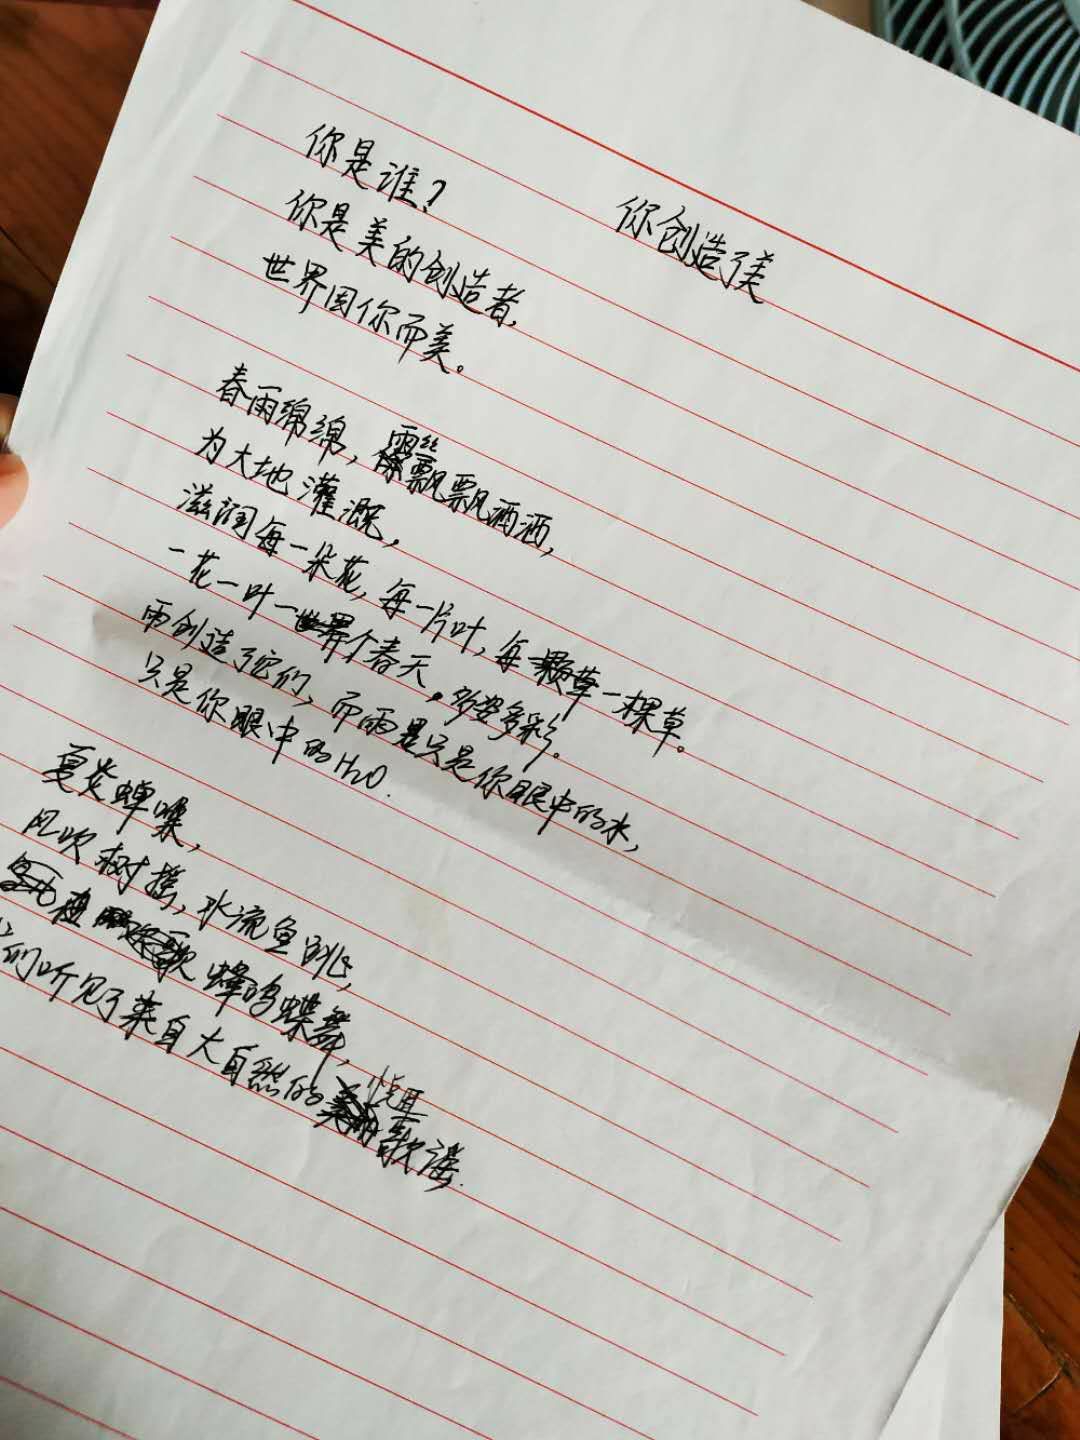 你创造了美
你是谁?
你是美的创造者,
世界因你而美。
春雨绵绵,雨丝飘飘洒洒,
为大地灌溉,
滋润每一朵花,每一片叶,每一棵草。
一花一叶一个春天。多姿多彩。
雨创造了它们,而雨是只是你眼中的水,
只是你眼中的H2O.
夏炎蝉噪,
风吹树摇,水流鱼跳,
蜂鸣蝶舞,
们听见了来自大自然的悦耳歌谣.